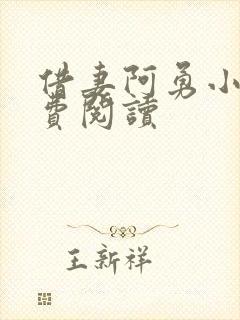 借妻阿勇小
費閱讀
王新祥